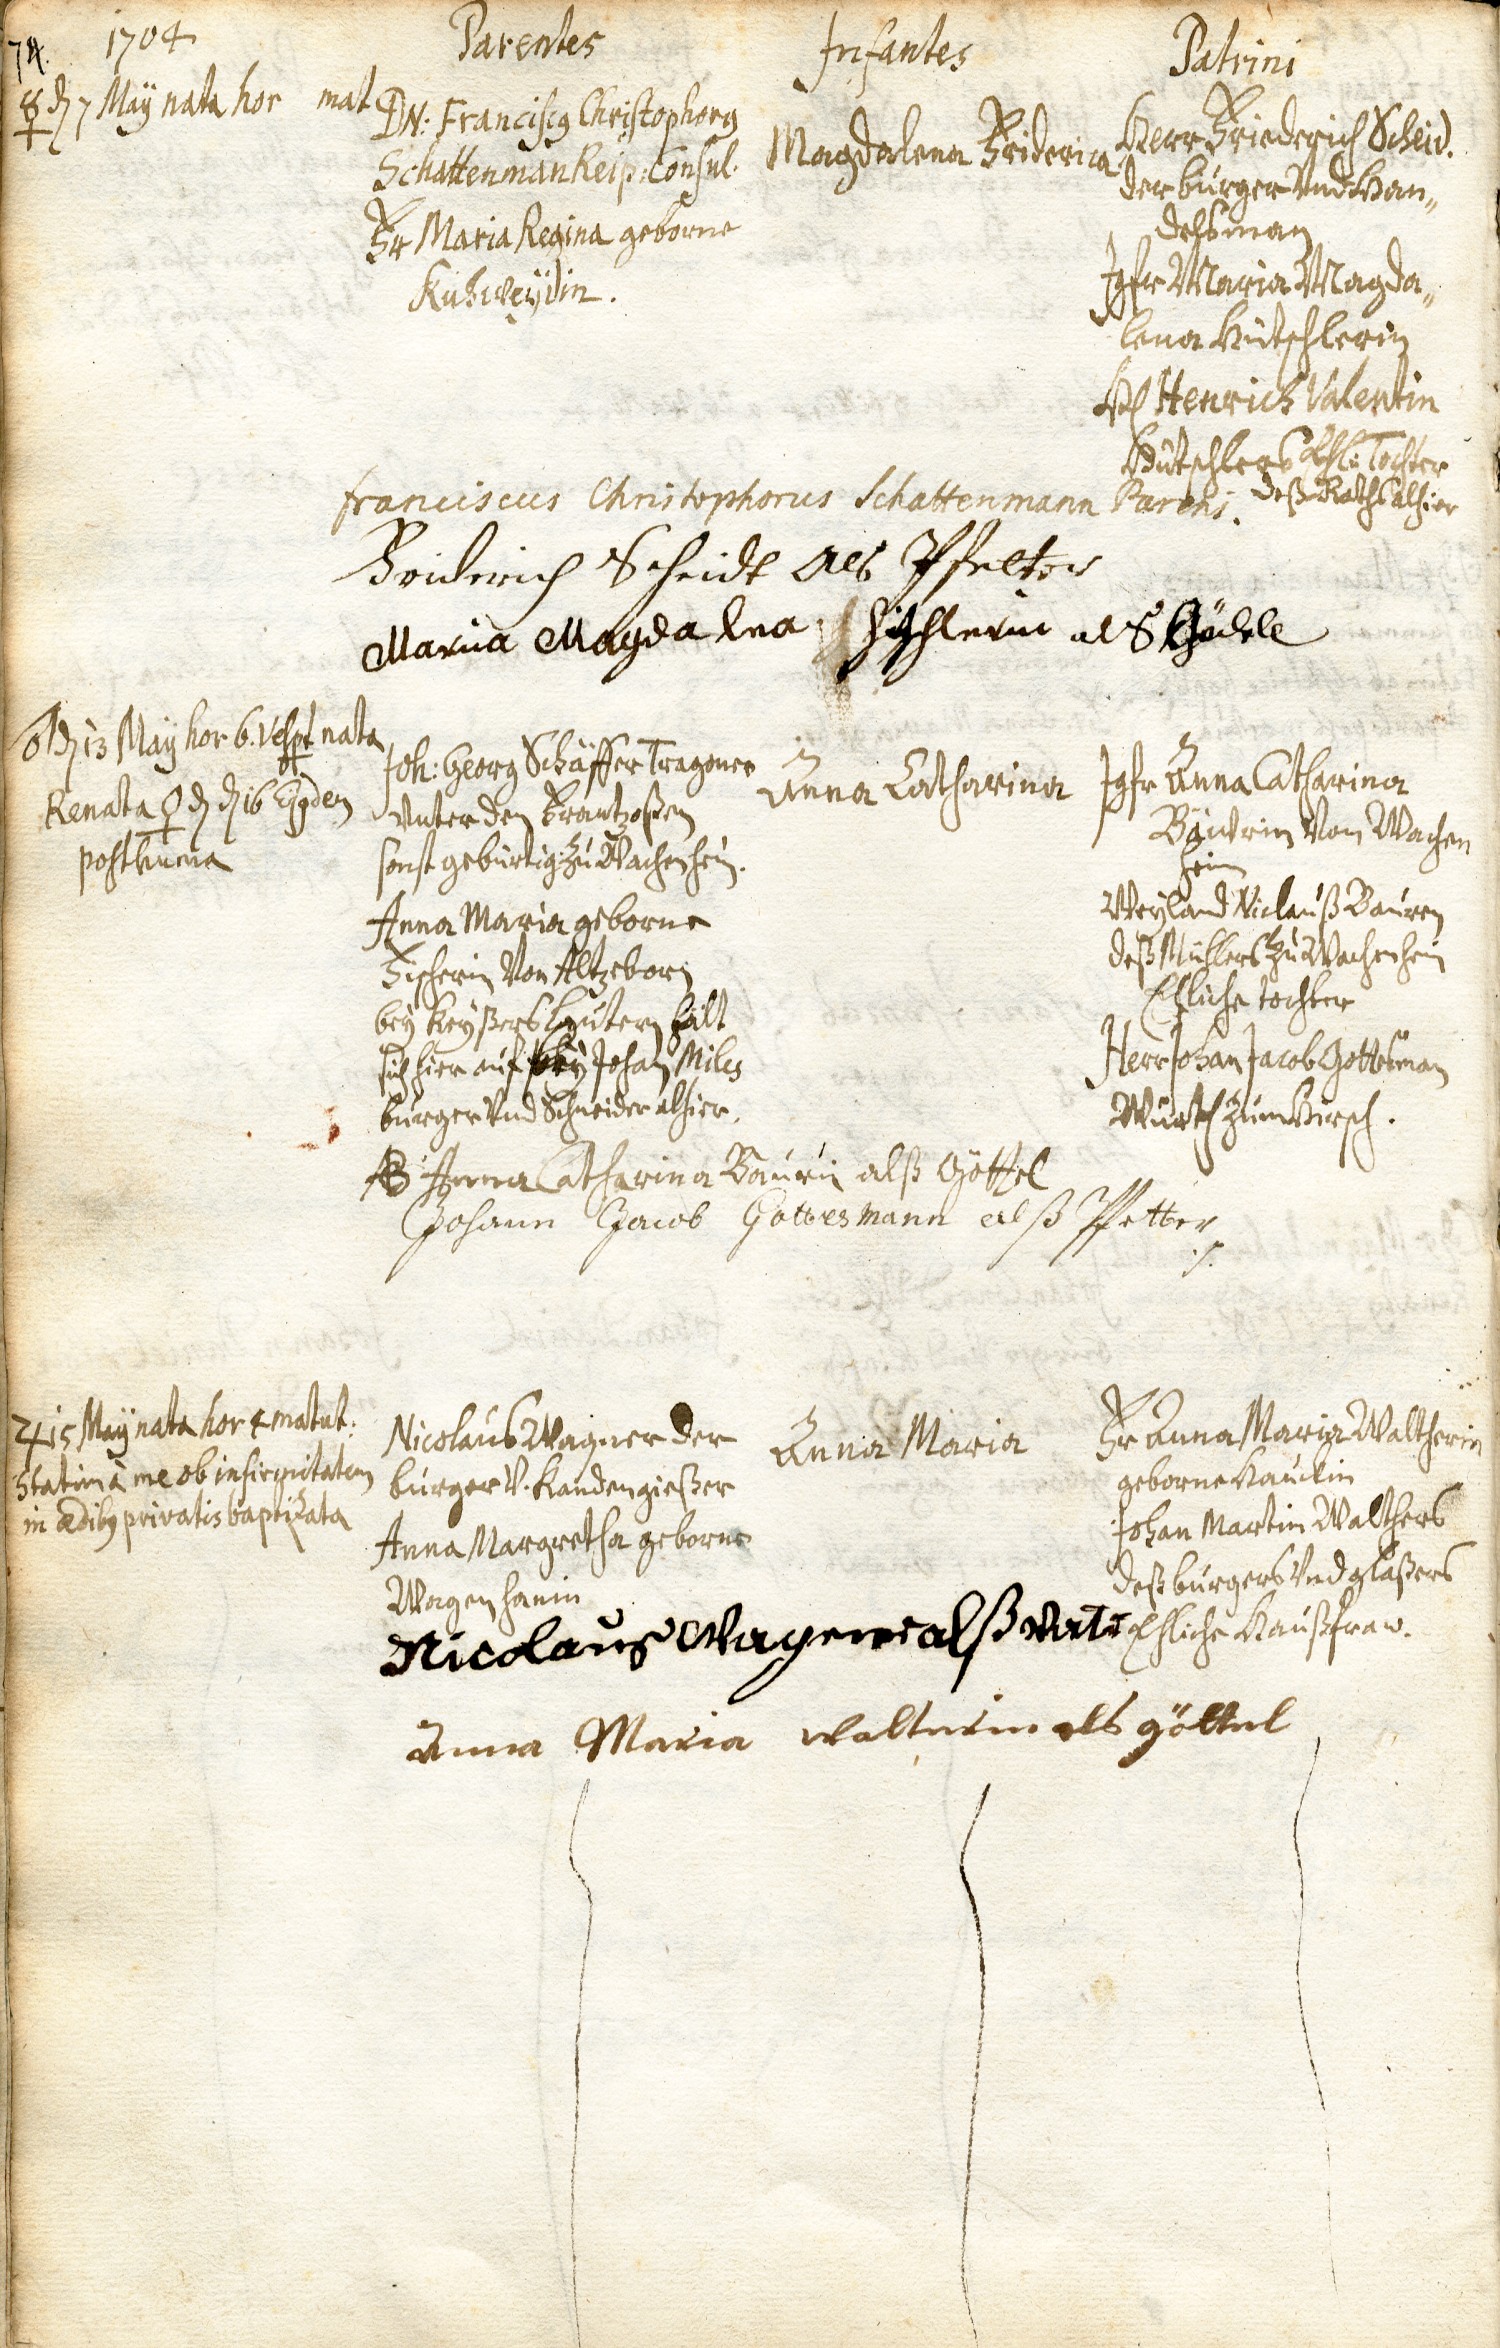 74. 1704 Parentes Infantes Patrini
☿ d 7 Maÿ nata hor mat
DN: Franciscg Christophorg
Schattenman Reip: Consul.
Fr Maria Regina geborne
Kuhweÿdin.
Magdalena Friderica
Herr Friederich Scheid.
der burger Vnd Han„
delsman
Jgfr Maria Magda„
lena Hütschlerin
H Henrich Valentin
Hütschlers Ehl: Tochter
deß Raths alhier
franciscus Christophorus Schattenmann Parens.
Friderich Scheidt als Pfetter
Maria Magdalena Hitschlerin als Gödele
♂ d 13 Maÿ hor 6. Vespt nata
Renata ♀ d 16 Ejgdem
posthuma
Joh: Georg Schäffer Tragoner
Vnter den Frantzoßen
sonst gebürtig Zu Wachenheim.
Anna Maria geborne
Fischerin Von Altzeborn
beÿ Keÿßerslautern hält
sich hier auf beÿ Johan Miles
burger Vnd Schneider alhier.
Anna Catharina
Jgfr Anna Catharina
Bäurin Von Wachen
heim
Weÿland Niclauß Bauren
deß Müllers Zu Wachenheim
Ehliche tochter
Herr Johan Jacob Gottesman
Würth Zum Hirsch.
Anna Catharina Baurin alß Göttel
Johann Jacob Gottesmann alß Pfetter
♃ 15 Maÿ nata hor 4 matut:
statim à me ob infirmitatem
in ædibg privatis baptizata
Nicolaus Wagner der
burger V. Kandengießer
Anna Margretha geborne
Wagenhanin
Anna Maria
Fr Anna Maria Waltherin
geborne Hauckin
Johan Martin Walthers
deß burgers Vnd glaßers
Ehliche Haußfraw.
Nicolaus Wagener alß Vater
Anna Maria walterin als göttel